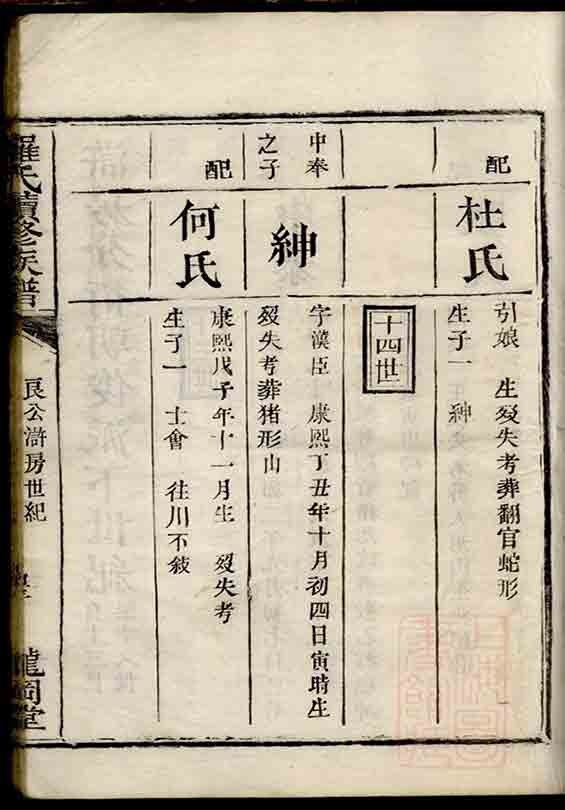 配
杜氏
引娘 生歿失考葬翻官蛇形
生子一 紳
十四世
中奉
之子
紳
字漢臣 康熙丁丑年十月初四日寅時生
歿失考葬猪形山
配
何氏
康熙戊子年十一月生 歿失考
生子一 士會 往川不敘
羅氏續修族譜
良公滸房世紀
龍岡堂